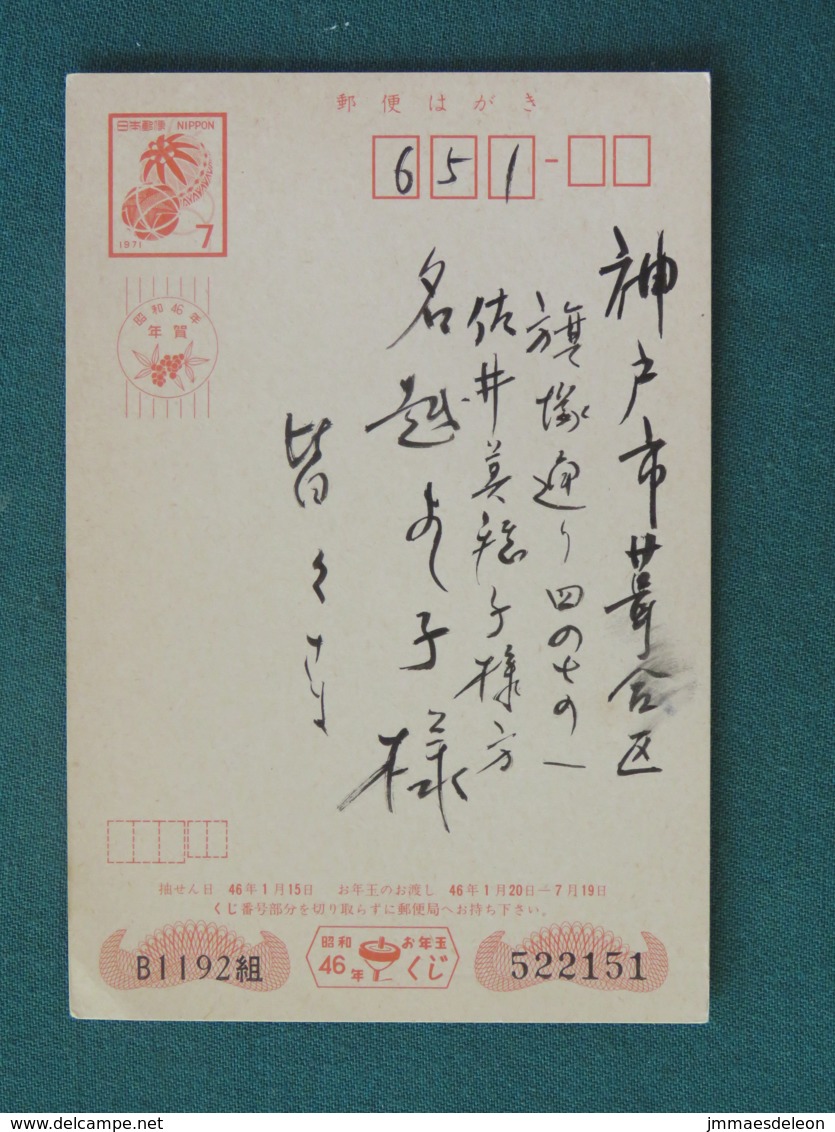 郵便はがき
日本郵便 NIPPON
1971
7
651
昭和46年
年賀
神戸市葺合区
旗塚通り四の七の一
佐井英穂子様方
名越よし子様
皆々す
抽せん日 46年1月15日 お年玉のお渡し 46年1月20日―7月19日
くじ番号部分を切り取らずに郵便局へお持ち下さい。
B1192組
昭和46年
お年玉くじ
522151
www.delcampe.net
jmmaesdeleon